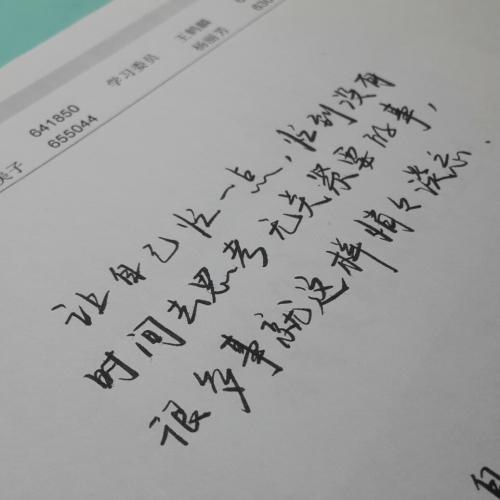 641850 学习委员 王鹤麟
655044 杨丽芳
让自己忙一点，忙到没有
时间去思考无关紧要的事，
很多事就这样悄悄淡忘.